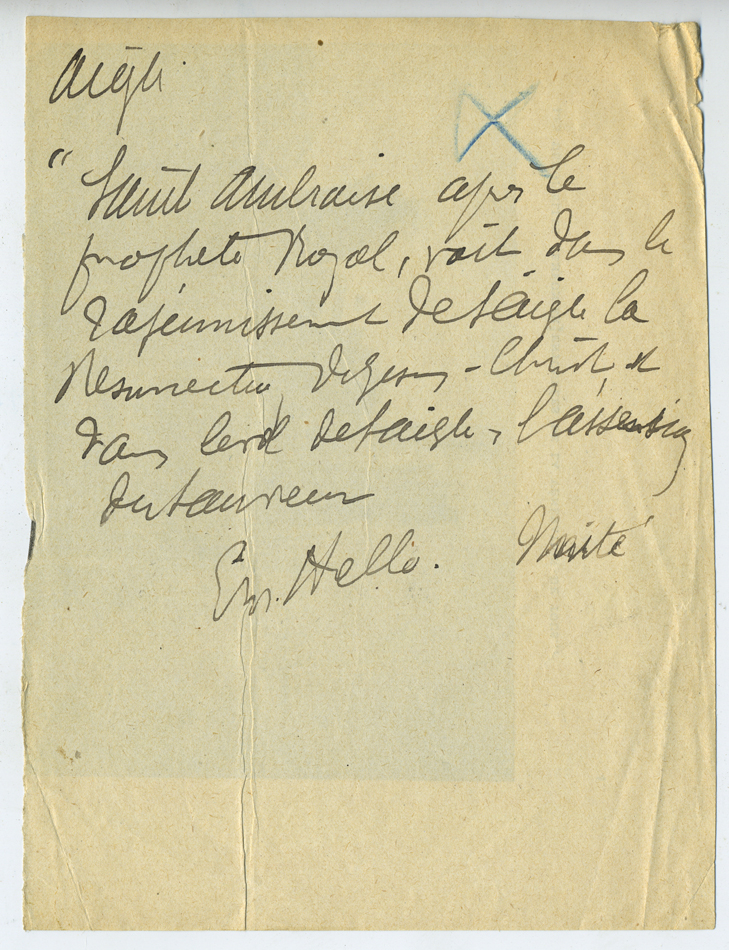 Aigle
" Saint Ambroise après le
prophete Royal, voit dans le
rajeunissement de l'aigle la
Resurrection de Jesus-Christ, et
dans le vol de l'aigle, l'assension
du Sauveur
Er. Hello.